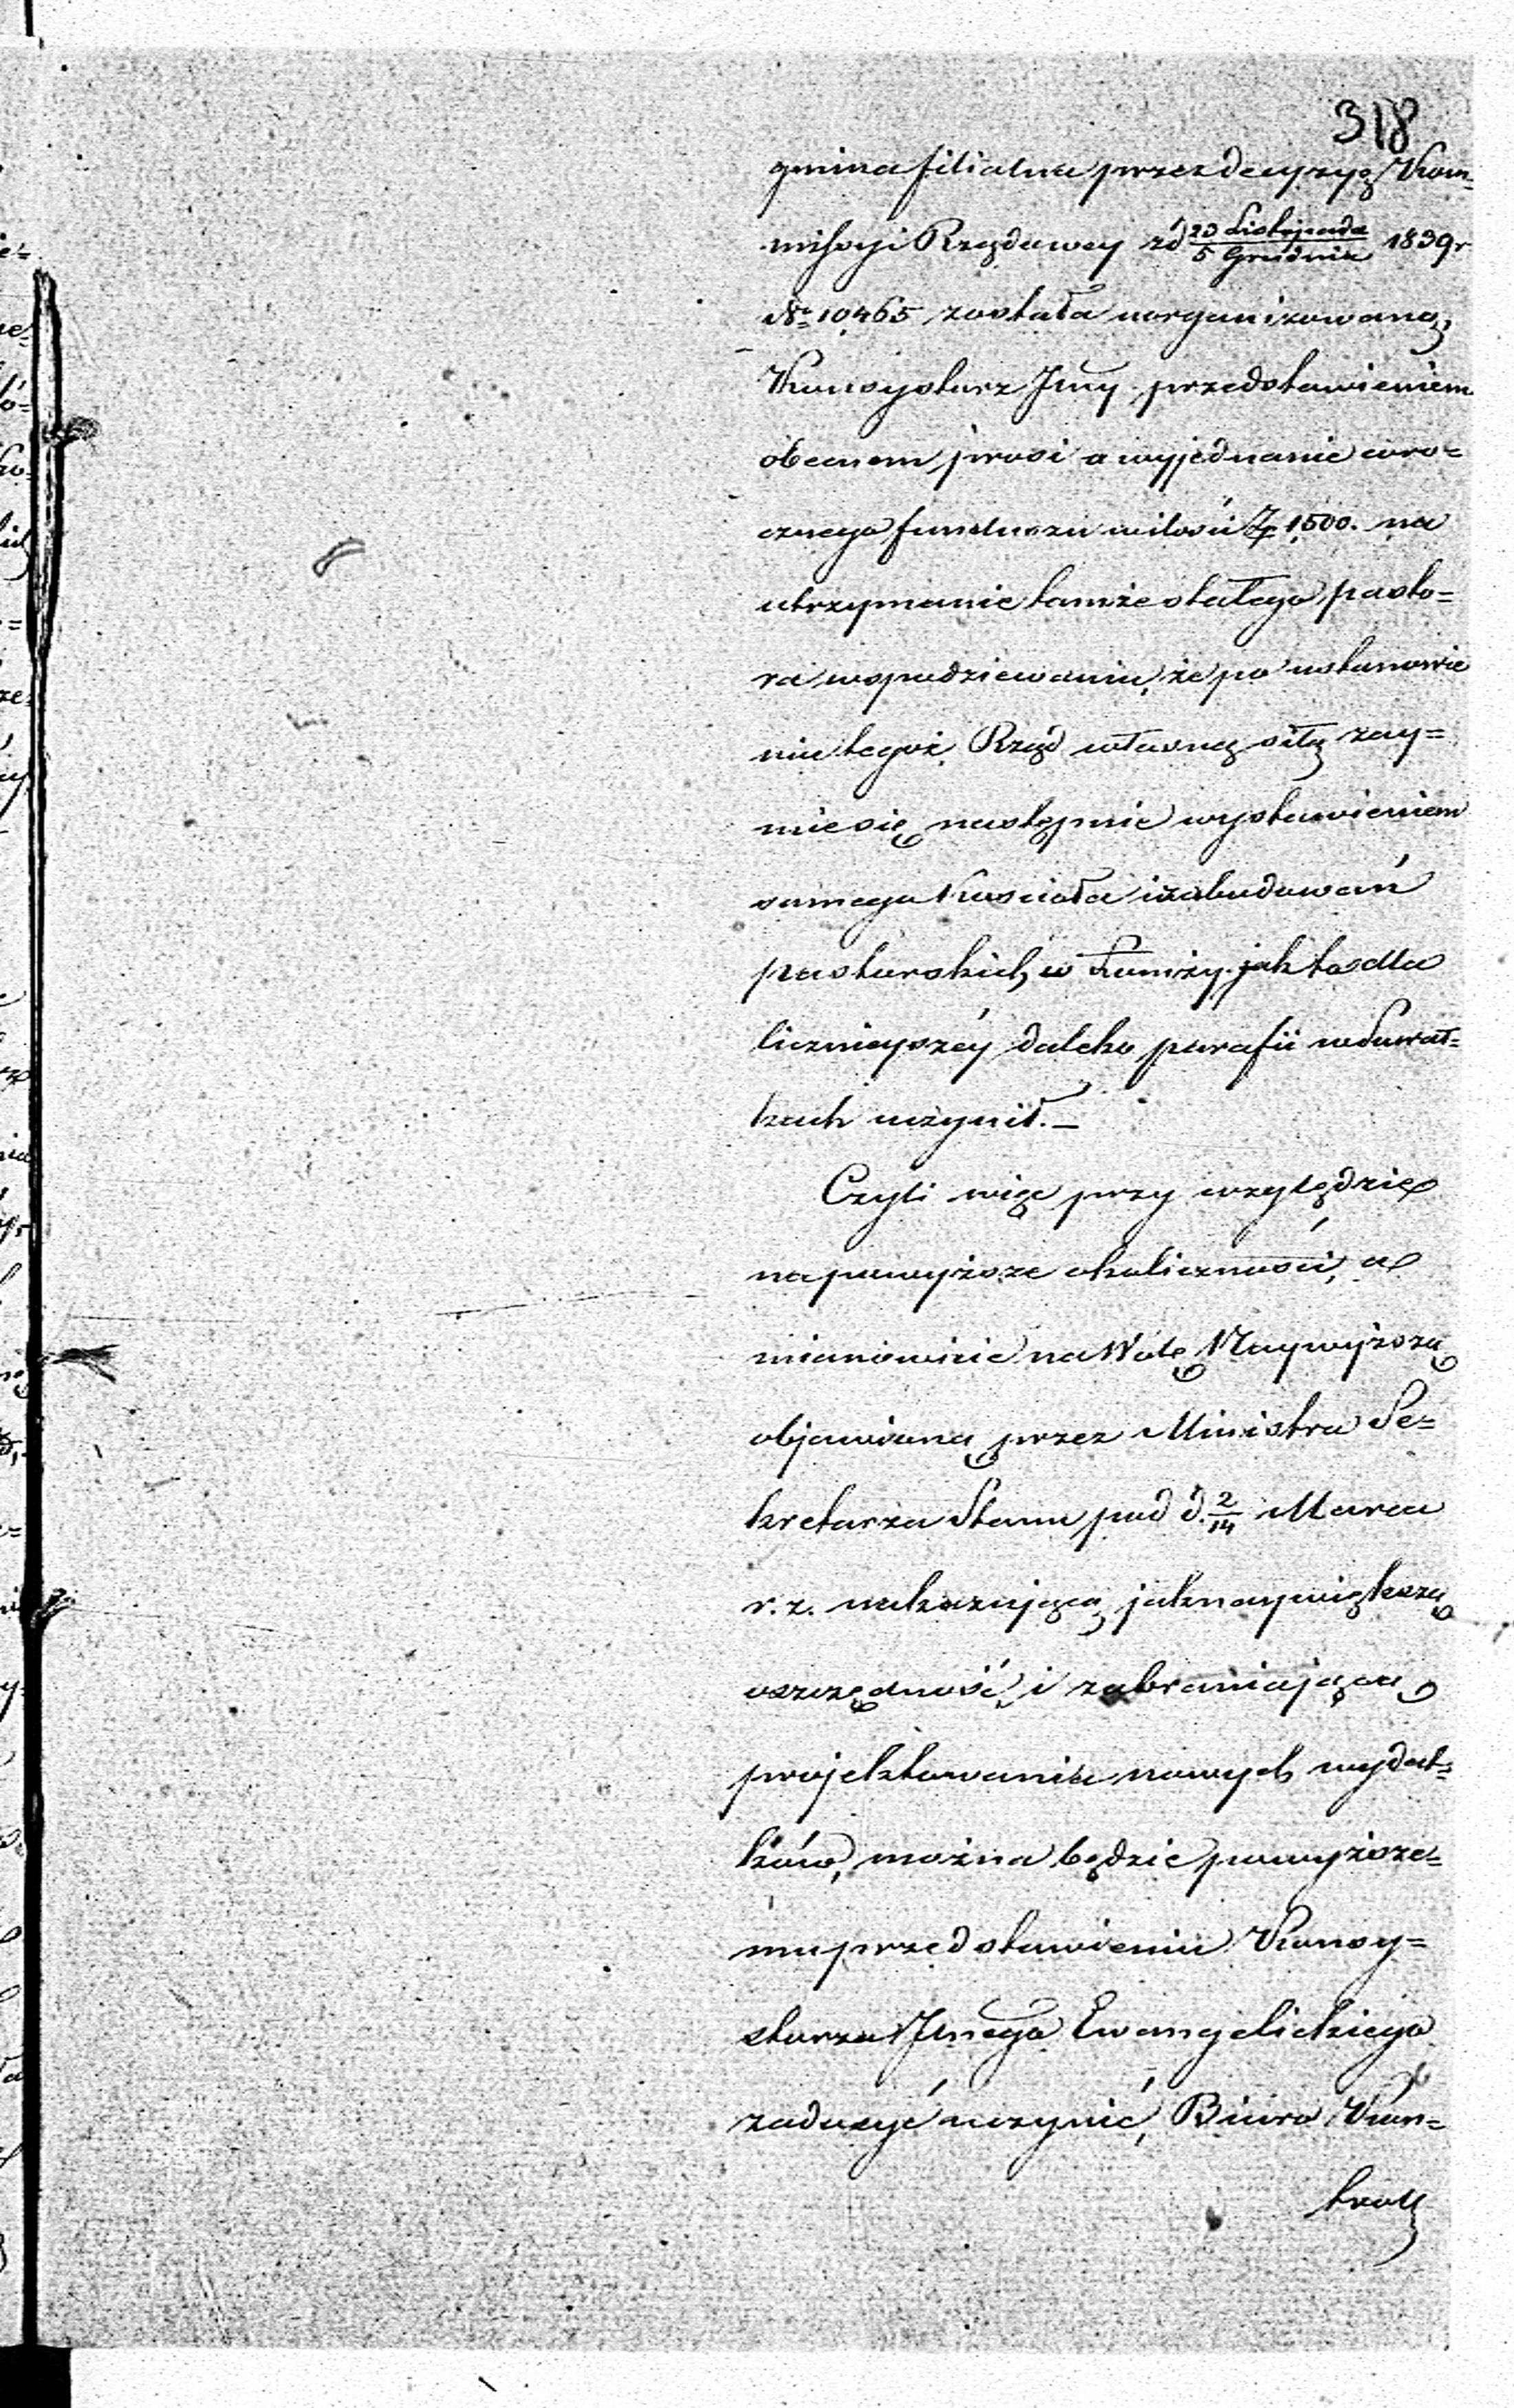 318
gmina filialna przez decyzyą Kom=
missyi Rządowey z d 23 Listopada / 5 Grudnia 1839 r
No 10,465 została uorganizowaną,
Konsystorz Jlny przedstawieniem
obecnem, prosi o wyjednanie coro=
cznego funduszu w ilości Zł 1,500. na
utrzymanie tamże stałego pasto=
ra w spodziewaniu, że po ustanowie
niu tegoż, Rząd własną siłą zay=
mie się następnie wystawieniem
samego Kościoła i zabudowań
pastorskich w Łomży, jak to dla
licznieyszéy daleko parafii w Suwał=
kach uczynił. —
Czyli więc przy względzie
na powyższe okoliczności, a
mianowicie na Wolę Naywyższą
objawioną przez Ministra Se=
kretarza Stanu pod d. 2/14 Marca
r. z. nakazującą jaknaywiększą
oszczędność i zabraniającą
projektowania nowych wydat=
ków, można będzie powyższe=
mu przedstawieniu Konsy=
storza Jlnego Ewangelickiego
zadosyć uczynić, Biuro Kon=
troli